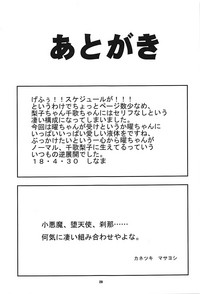 あとがき
げふぅ！！スケジュールが！！！
というわけでちょっとページ数少なめ、
梨子ちゃん千歌ちゃんにはセリフなしという
凄い構成になってしまいました。
今回は曜ちゃんが受けというか曜ちゃんに
いっぱいいっぱい愛しい液体をですね、
ぶっかけたいという一心から曜ちゃんが
ノーマル、千歌梨子に生えてるっていう
いつもの逆展開でした。
18・4・30　しなま
小悪魔、堕天使、刹那……
何気に凄い組み合わせやよな。
カネツキ　マサヨシ